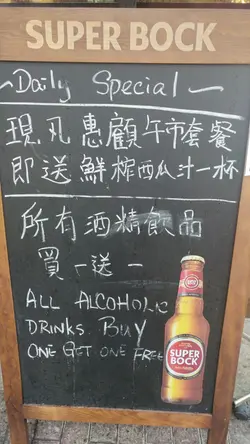 SUPER BOCK
~Daily Special~
現凡惠顧午市套餐
即送鮮榨西瓜汁一杯
所有酒精飲品
買一送一
ALL ALCOHOLIC
DRINKS BUY
ONE GET ONE FREE
SUPER
BOCK